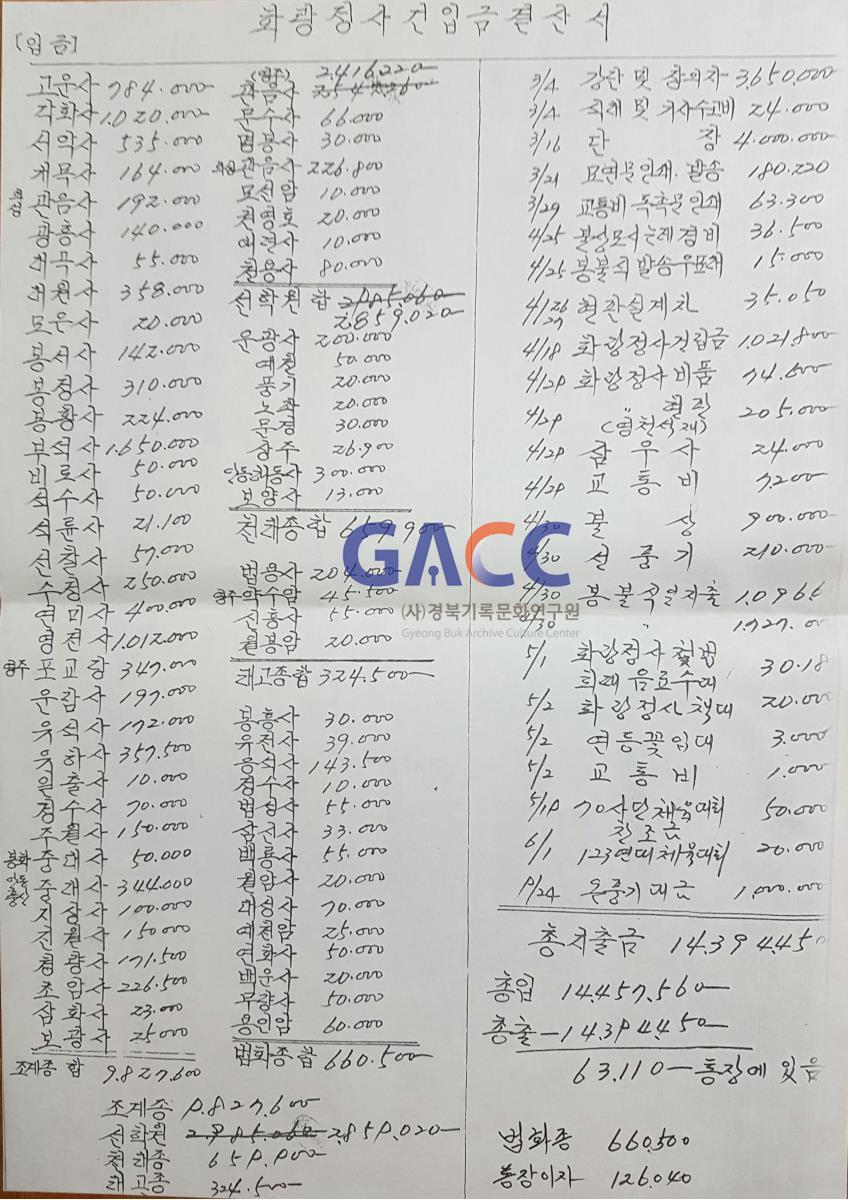 화랑정사건입금결산서
[입금]
고운사 784.000
각화사 1.020.000
서악사 535.000
개목사 164.000
관음사 192.000
광흥사 140.000
대곡사 55.000
대원사 358.000
모운사 20.000
봉서사 142.000
봉정사 310.000
봉황사 224.000
부석사 1.650.000
비로사 50.000
석수사 50.000
석륜사 21.100
선찰사 57.000
수정사 250.000
연미사 400.000
영전사 1.012.000
영주 포교당 347.000
운람사 197.000
유석사 172.000
유하사 357.500
일출사 10.000
정수사 70.000
주월사 150.000
봉화 중대사 50.000
중대사 344.000
지상사 100.000
진월사 150.000
청량사 171.500
초암사 226.500
삼화사 23.000
보광사 25.000
조계종 합 9.827.600
2.416.220
관음사
문수사 66.000
법봉사 30.000
관음사 226.800
모선암 10.000
천영호 20.000
애련사 10.000
천용사 80.000
선학원 합 2.985.060
2.859.020
운광사 200.000
예천 50.000
풍기 20.000
노좌 20.000
문경 30.000
상주 26.900
안동해동사 300.000
보양사 13.000
천태종 합 659.900
법용사 204.000
영주 약수암 45.500
신흥사 55.000
월봉암 20.000
태고종합 324.500
봉흥사 30.000
유전사 39.000
용석사 143.500
정수사 10.000
법성사 55.000
삼선사 33.000
백룡사 55.000
월암사 20.000
대성사 70.000
예천암 25.000
연화사 50.000
백운사 20.000
무량사 50.000
용인암 60.000
법화종 합 660.500
조계종 9.827.600
선학원 2.985.060 2.859.020
천태종 659.900
태고종 324.500
3/4 강단 및 창의자 3.650.000
3/4 의래 및 기사수고비 24.000
3/16 단 창 4.000.000
3/21 모연문인쇄. 발송 180.220
3/29 교통비 독촉문인쇄 63.300
4/25 불상모시는데 경비 36.500
4/25 봉불식 발송우표대 15.000
4/26 27 현판설계차 35.050
4/18 화랑정사건립금 1.021.800
4/29 화랑정사비품 74.600
4/29 〃 현판 205.000
(영천석재)
4/29 삼우사 24.000
4/29 교통비 7.200
4/30 불 상 900.000
4/30 선풍기 210.000
4/30 봉불식일지출
4/30 〃
5/1 화랑정사 첫법
회때 음료수대
5/2 화랑정사 책대 20.000
5/2 연등꽃잎대 3.000
5/2 교통비 1.000
5/19 70사단체육대회 50.000
찬조금
6/1 123연대체육대회 20.000
9/24 온풍기대금 1.000.000
총지출금 14.394.450
총입 14.457.560
총출 -14.394.450
63.110 - 통장에 있음
법화종 660.500
통장이자 126.040
GACC
(사)경북기록문화연구원
Gyeong Buk Archive Culture Center